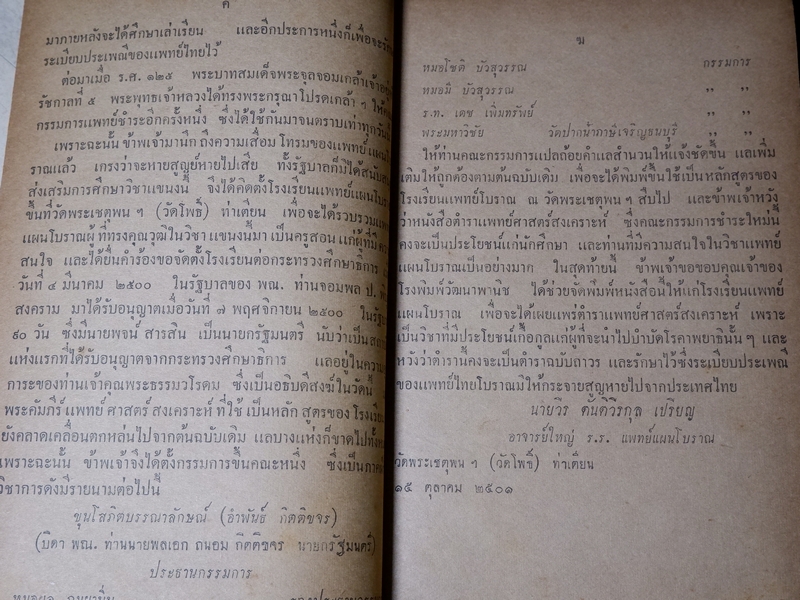 ค
มาภายหลังจะได้ศึกษาเล่าเรียน และอีกประการหนึ่งก็เพื่อจะรักษา
ระเบียบประเพณีของแพทย์ไทยไว้
ต่อมาเมื่อ ร.ศ. ๑๒๕ พระบาทสมเด็จพระจุลจอมเกล้าเจ้าอยู่
รัชกาลที่ ๕ พระพุทธเจ้าหลวงได้ทรงพระกรุณาโปรดเกล้า ๆ ให้
กรรมการแพทย์ชำระอีกครั้งหนึ่ง ซึ่งได้ใช้กันมาจนตราบเท่าทุกวัน
เพราะฉะนั้น ข้าพเจ้ามานึกถึงความเสื่อมโทรมของแพทย์แผน
ราณแล้ว เกรงว่าจะหายสูญย์หายไปเสีย ทั้งรัฐบาลก็มิได้สนับ
ส่งเสริมการศึกษาวิชาแขนงนี้ จึงได้คิดตั้งโรงเรียนแพทย์แผนโบรา
ขึ้นที่วัดพระเชตุพน ฯ (วัดโพธิ์) ท่าเตียน เพื่อจะได้รวบรวมแพท
แผนโบราณผู้ที่ทรงคุณวุฒิในวิชาแขนงนี้มาเป็นครูสอน แก่ผู้ที่มีค
สนใจ และได้ยื่นคำร้องขอจัดตั้งโรงเรียนต่อกระทรวงศึกษาธิการ
วันที่ ๔ มีนาคม ๒๕๐๐ ในรัฐบาลของ พณ. ท่านจอมพล ป. พิ
สงคราม มาได้รับอนุญาตเมื่อวันที่ ๗ พฤศจิกายน ๒๕๐๐ ในรัฐ
๙๐ วัน ซึ่งมีนายพจน์ สารสิน เป็นนายกรัฐมนตรี นับว่าเป็นส
แห่งแรกที่ได้รับอนุญาตจากกระทรวงศึกษาธิการ แลอยู่ในความ
การะของท่านเจ้าคุณพระธรรมวโรดม ซึ่งเป็นอธิบดีสงฆ์ในวัดนี้
พระคัมภีร์แพทย์ศาสตร์สงเคราะห์ ที่ใช้เป็นหลักสูตรของโรงเรีย
ยังคลาดเคลื่อนตกหล่นไปจากต้นฉบับเดิม แลบางแห่งก็ขาดไปทั้ง
เพราะฉะนั้น ข้าพเจ้าจึงได้ตั้งกรรมการขึ้นคณะหนึ่ง ซึ่งเป็นภาค
วิชาการดังมีรายนามต่อไปนี้
ขุนโสภิตบรรณาลักษณ์ (อำพันธ์ กิตติขจร)
(บิดา พณ. ท่านนายพลเอก ถนอม กิตติขจร นายกรัฐมนตรี)
ประธานกรรมการ
ฆ
หมอโชติ บัวสุวรรณ กรรมการ
หมอมี บัวสุวรรณ ,, ,,
ร.ท. เดช เพิ่มทรัพย์ ,, ,,
พระมหาวิชัย วัดปากน้ำภาษีเจริญธนบุรี ,, ,,
ให้ท่านคณะกรรมการแปลถ้อยคำแลสำนวนให้แจ้งชัดขึ้น แลเพิ่ม
เติมให้ถูกต้องตามต้นฉบับเดิม เพื่อจะได้พิมพ์ขึ้นใช้เป็นหลักสูตรของ
โรงเรียนแพทย์โบราณ ณ วัดพระเชตุพน ฯ สืบไป และข้าพเจ้าหวัง
ว่าหนังสือตำราแพทย์ศาสตร์สงเคราะห์ ซึ่งคณะกรรมการชำระใหม่นี้
คงจะเป็นประโยชน์แก่นักศึกษา และท่านที่มีความสนใจในวิชาแพทย์
แผนโบราณเป็นอย่างมาก ในสุดท้ายนี้ ข้าพเจ้าขอขอบคุณเจ้าของ
โรงพิมพ์วัฒนาพานิช ได้ช่วยจัดพิมพ์หนังสือนี้ให้แก่โรงเรียนแพทย์
แผนโบราณ เพื่อจะได้เผยแพร่ตำราแพทย์ศาสตร์สงเคราะห์ เพราะ
เป็นวิชาที่มีประโยชน์เกื้อกูลแก่ผู้ที่จะนำไปบำบัดโรคาพยาธินั้น ๆ และ
หวังว่าตำรานี้คงจะเป็นตำราฉบับถาวร และรักษาไว้ซึ่งระเบียบประเพณี
ของแพทย์ไทยโบราณมิให้กระจายสูญหายไปจากประเทศไทย
นายวิร ตันติวีรกุล เปรียญ
อาจารย์ใหญ่ ร.ร. แพทย์แผนโบราณ
วัดพระเชตุพน ฯ (วัดโพธิ์) ท่าเตียน
๑๕ ตุลาคม ๒๕๐๑